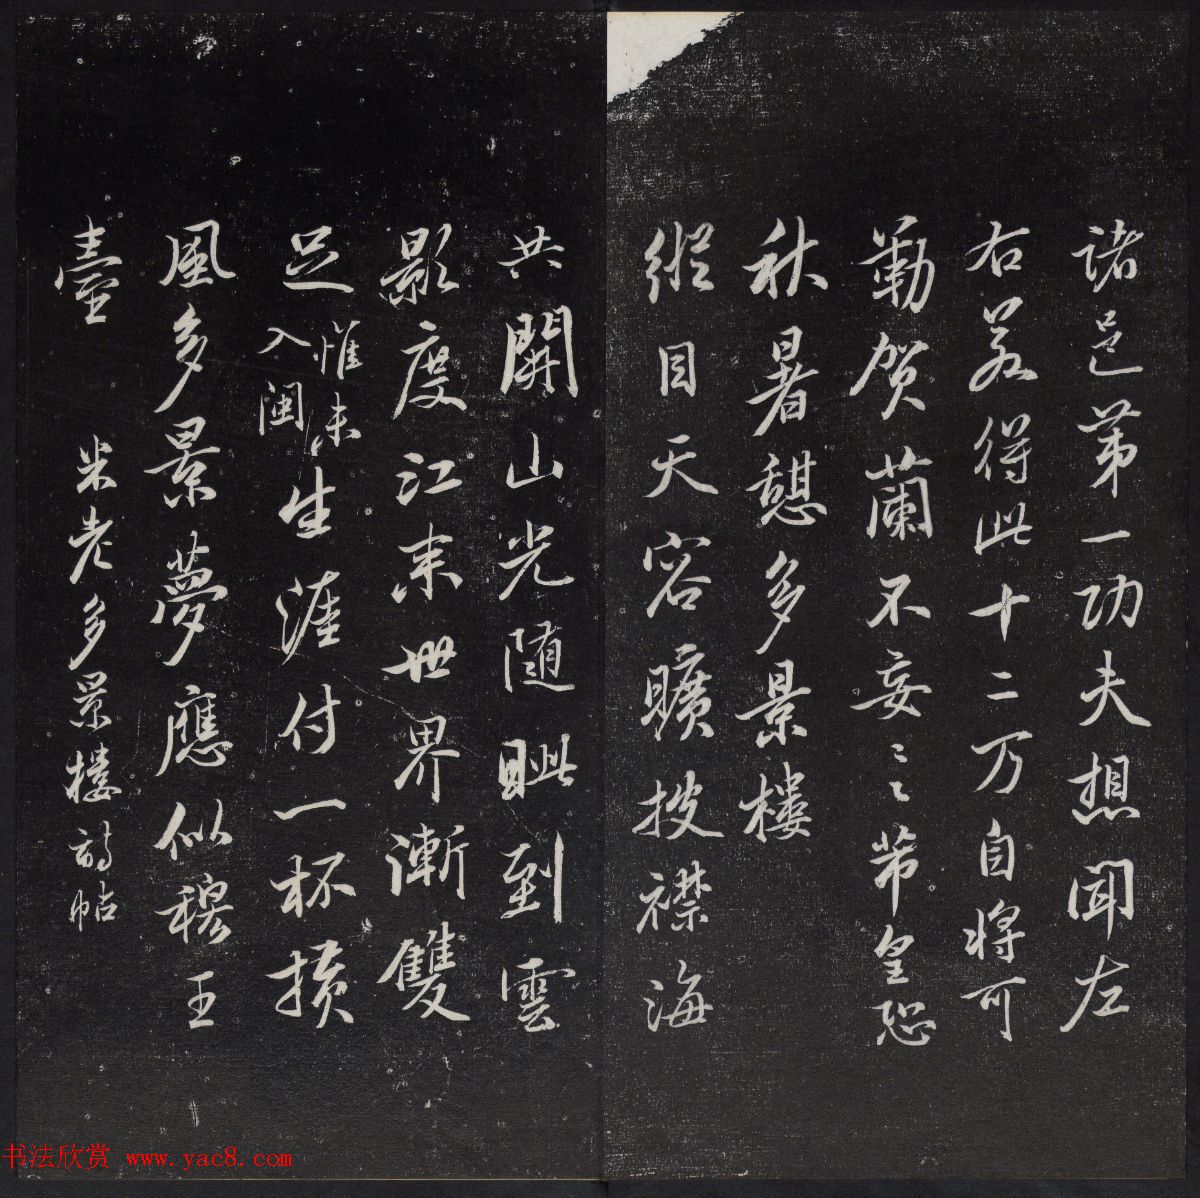 諸邑第一功夫想聞左
右若得此十二万自將可
勤賀蘭不妄〻芾皇恐
秋暑憩多景樓
縱目天容曠披襟海
共開山光隨眦到雲
影度江來世界漸雙
足惟未入閩生涯付一杯橫
風多景夢應似穆王
臺
米老多景樓詩帖
书法欣赏 www.yac8.com